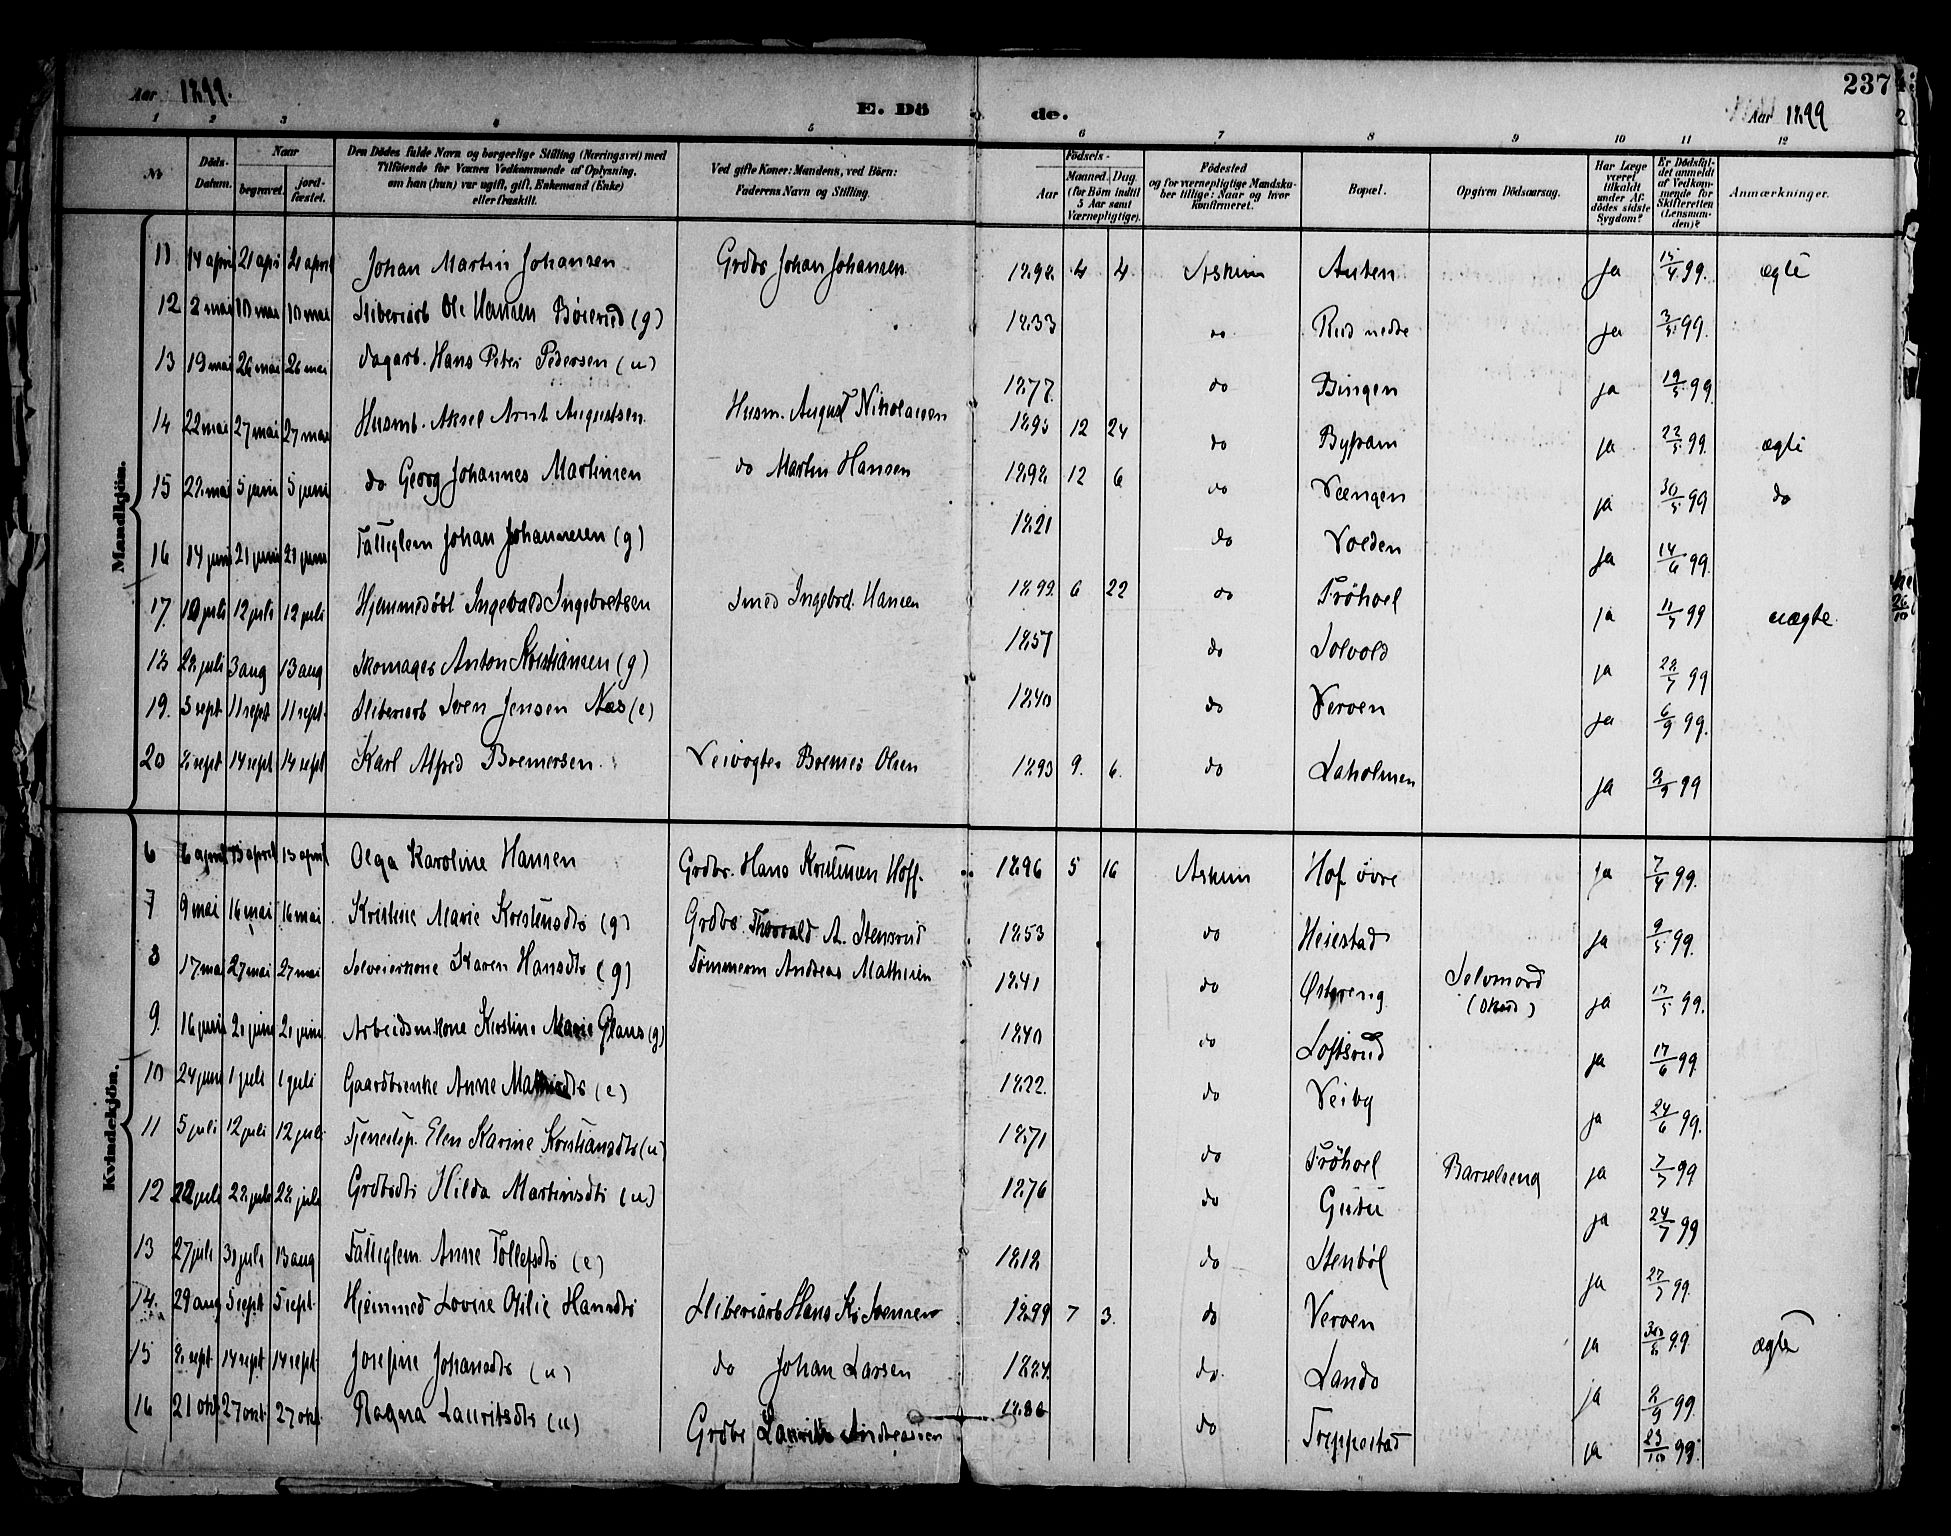 Aar 1899.
E. Döde.
Aar 1899
237
1 2 3 4 5 6 7 8 9 10 11 12
No
Döds-Datum.
Naar
begravet.
jordfæstet.
Den Dödes fulde Navn og borgerlige Stilling (Næringsvei) med Tilföiende for Voxnes Vedkommende af Oplysning, om han (hun) var ugift, gift, Enkemand (Enke) eller fraskilt.
Ved gifte Koner: Mandens, ved Börn: Faderens Navn og Stilling.
Födsels-
Aar
Maaned. Dag. (for Börn indtil 5 Aar samt Værnepligtige).
Födested og for værnepligtige Mandskaber tillige: Naar og hvor Konfirmeret.
Bopæl.
Opgiven Dödsaarsag.
Har Læge været tilkaldt under Afdödes sidste Sygdom?
Er Dödsfaldet anmeldt af Vedkommende for Skifteretten (Lensmanden)?
Anmærkninger.
Mandkjön.
11 14 april 21 april 21 april Johan Martin Johansen Grdbr Johan Johansen 1898 4 4 Askim Auten ja 15/4 99. ægte
12 2 mai 10 mai 10 mai Sliberiarb Ole Hansen Böierud (g) 1833 do Rud nedre ja 3/5 99.
13 19 mai 26 mai 26 mai Dagarb. Hans Peter Pedersen (u) 1877 do Bingen ja 19/5 99.
14 22 mai 27 mai 27 mai Husmb. Aksel Arnt Augustsen Husm. August Nikolaisen 1895 12 24 do Byfram ja 22/5 99. ægte
15 28 mai 5 juni 5 juni do Georg Johannes Martinsen do Martin Hansen 1898 12 6 do Vængen ja 30/5 99 do
16 14 juni 21 juni 21 juni Fattiglem Johan Johannesen (g) 1821 do Volden ja 14/6 99.
17. 10 juli 12 juli 12 juli Hjemmedöbt Ingebald Ingebretsen Smed Ingebrd. Hansen 1899 6 22 do Fröhoel ja 11/7 99 uægte.
18 28 juli 3 aug 13 aug Skomager Anton Kristiansen (g) 1857 do Solvold ja 28/7 99
19. 5 sept 11 sept 11 sept. Sliberiarb Sven Jensen Næs (e) 1840 do Verven ja 6/9 99.
20 8 sept 14 sept 14 sept Karl Alfred Bremersen. Veivogter Bremer Olsen 1893 9. 6. do Laholmen ja 9/9 99
Kvindekjön.
6 6 april 13 april 13 april Olga Karoline Hansen Grdbr. Hans Kristensen Hoff. 1896 5 16 Askim Hof övre ja 7/4 99.
7 9 mai 16 mai 16 mai Kristine Marie Kristensdtr (g) Grdbr. Thorvald A. Stensrud 1853 do Heiestad ja 9/5 99.
8 17 mai 27 mai 27 mai Selveierkone Karen Hansdtr (g) Tömmerm Andreas Mathisen 1841 do Østereng Selvmord ja 17/5 99.
9. 16 juni 21 juni 21 juni Arbeidsmkone Kirstine Marie Glans (g) 1840 do Loftsrud ja 17/6 99.
10 24 juni 1 juli 1 juli Gaardbrenke Anne Mathisdtr (e) 1822. do Veiby ja 24/6 99.
11 5 juli 12 juli 12 juli Tjenestep. Elen Karine Kristiansdtr (u) 1871 do Fröhoel Barselseng ja 7/7 99
12 22 juli 28 juli 28 juli Grdbrdtr Hilda Martinsdtr (u) 1876 do Gutu ja 24/7 99
13 27 juli 31 juli 13 aug Fattiglem. Anne Tollefsdtr (e) 1818 do Stenböl ja 27/7 99.
14. 29 aug 5 sept 5 sept. Hjemmed Lovise Otilie Hansdtr Sliberiarb Hans Kr Svensen 1899 7 3. do Verven ja 30/8 99 ægte
15 8 sept 14 sept 14 sept. Josefine Johansdtr (u) do Johan Larsen 1884 do Lando ja 8/9 99.
16 21 okt 27 okt. 27 okt. Ragna Lauritsdtr (u) Grdbr Laurits Andreassen 1886 do Treppestad ja 23/10 99.